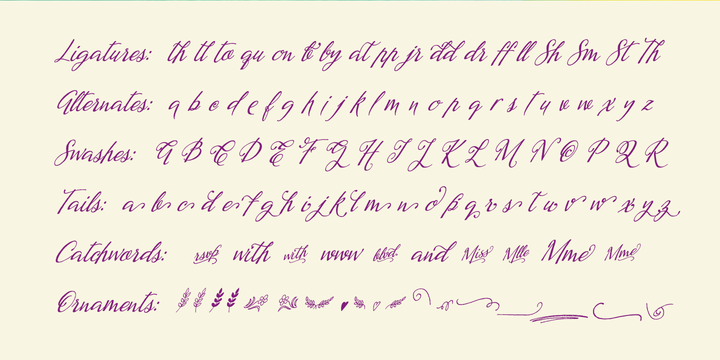 Ligatures: th tl to qu on b' by at pp jr dd dr ff ll Sh Sm St Th
Alternates: a b c d e f g h i j k l m n o p q r s t u v w x y z
Swashes: A B C D E F G H I J K L M N O P Q R
Tails: a b c d e f g h i j k l m n o p q r s t u v w x y z
Catchwords: rsvp with with www blvd and Miss Mlle Mme Mme
Ornaments: